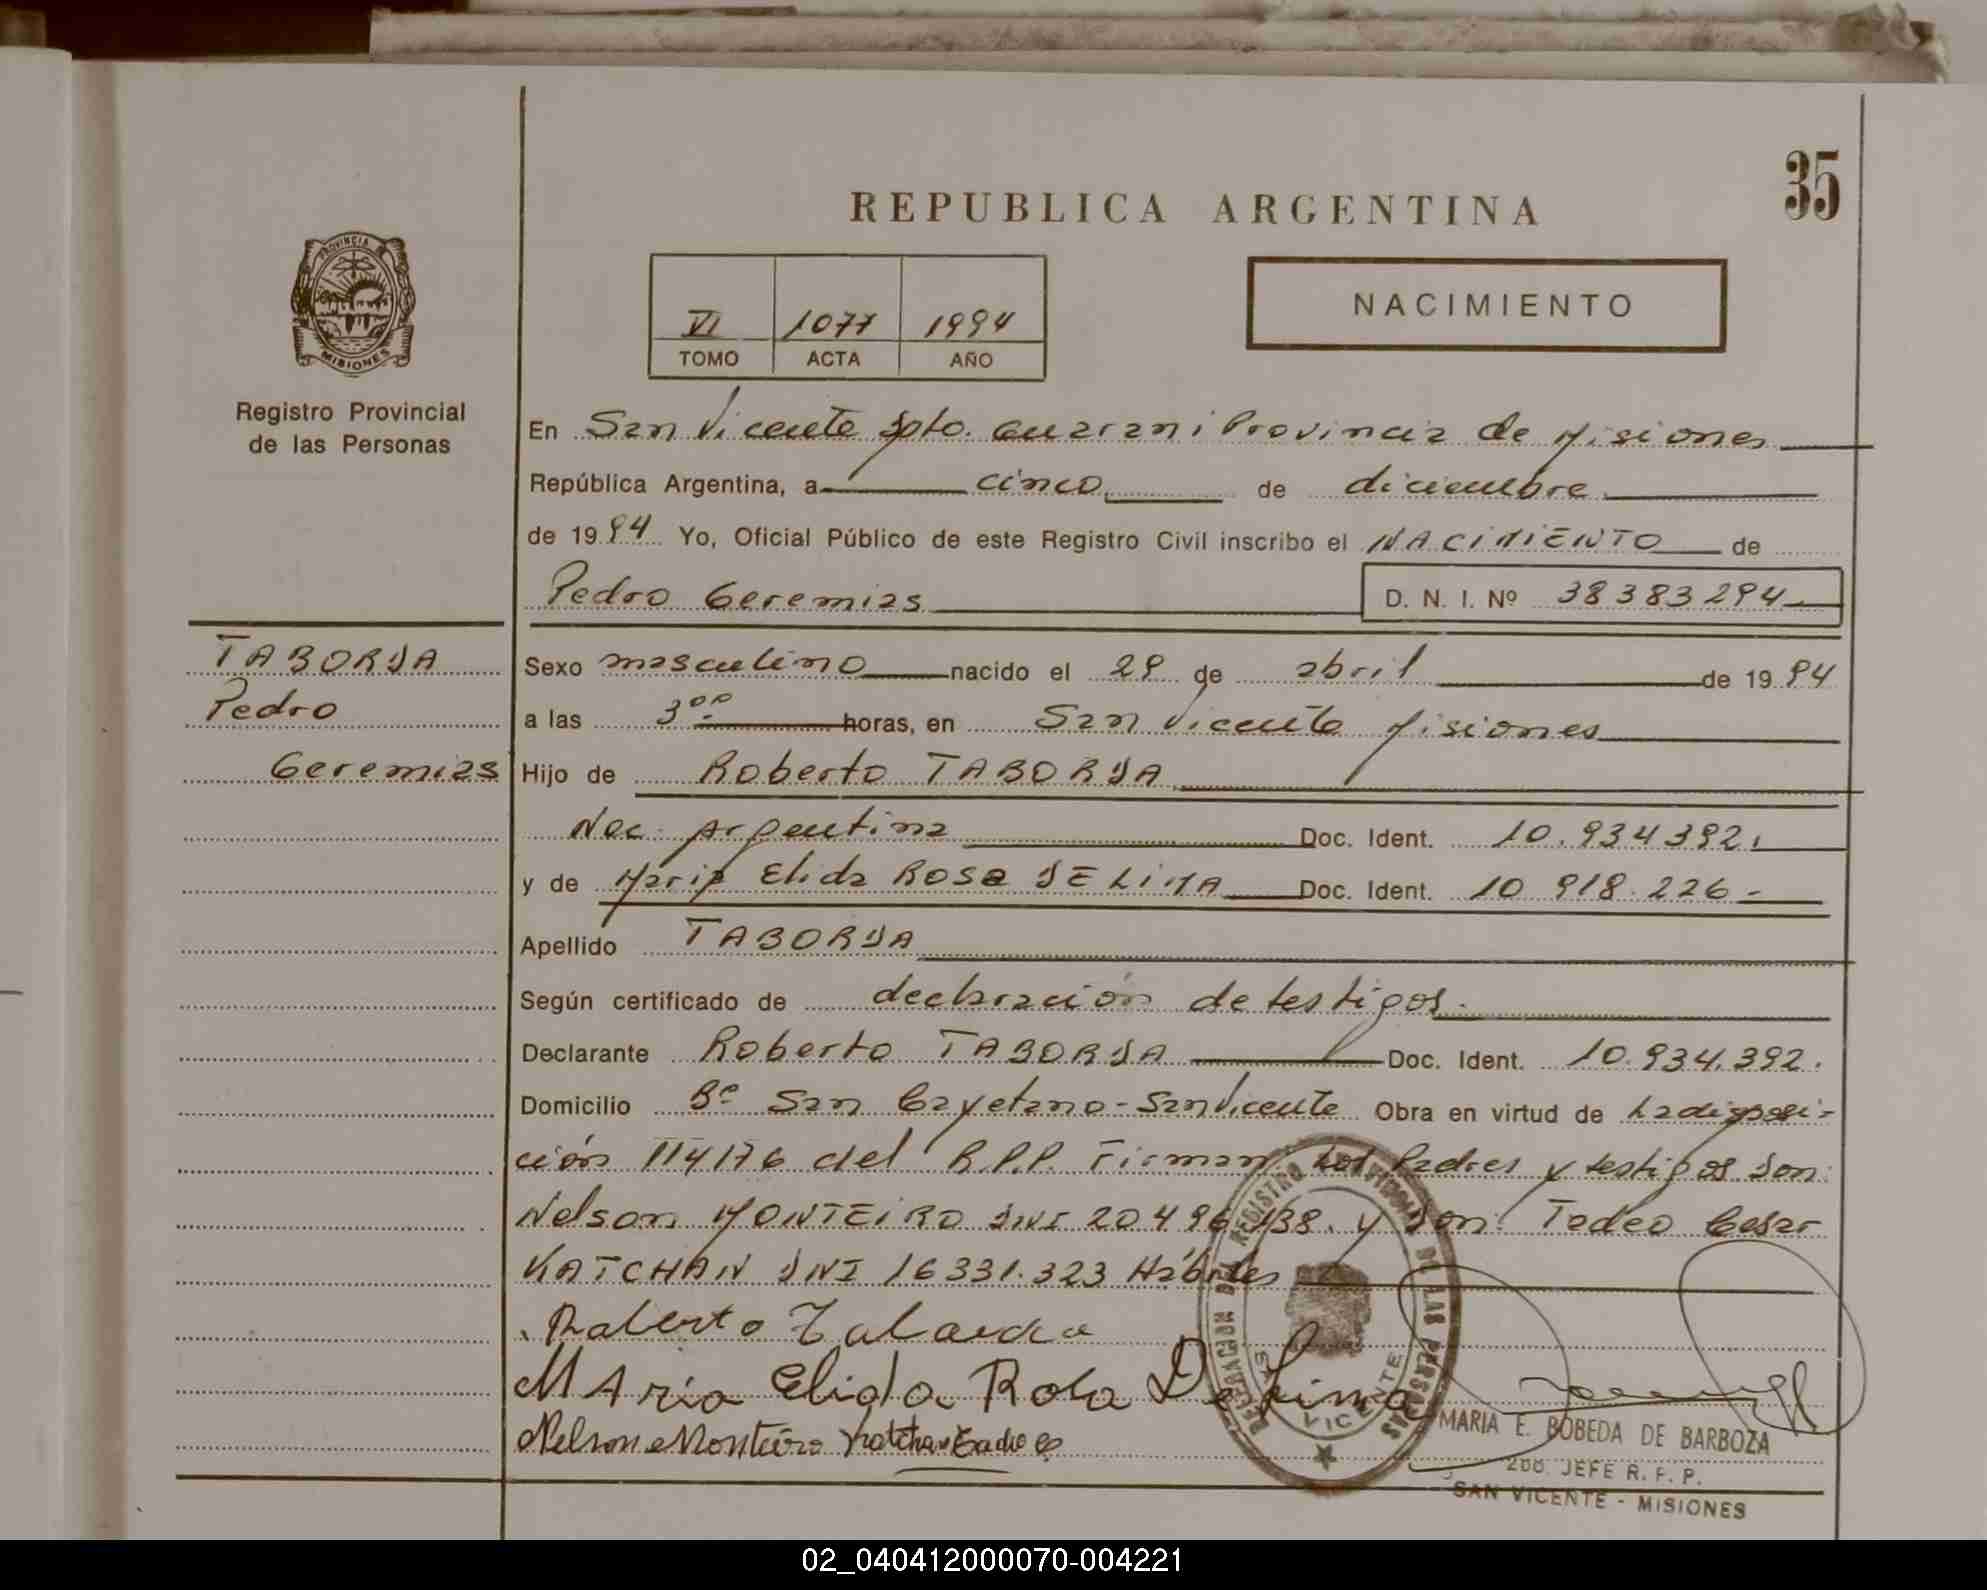 35
REPUBLICA ARGENTINA
PROVINCIA
MISIONES
Registro Provincial
de las Personas
VI 1077 1994
TOMO ACTA AÑO
NACIMIENTO
En San Vicente Dpto. Guarani Provincia de Misiones
República Argentina, a cinco de diciembre
de 1994 Yo, Oficial Público de este Registro Civil inscribo el NACIMIENTO de
Pedro Geremias D. N. I. Nº 38383294
TABORDA
Pedro
Geremias
Sexo masculino nacido el 29 de abril de 1994
a las 3ºº horas, en San Vicente Misiones
Hijo de Roberto TABORDA
Nac. Argentina Doc. Ident. 10.934392.
y de Maria Elida ROSA DE LIMA Doc. Ident. 10 918.226-
Apellido TABORDA
Según certificado de declaración de testigos.
Declarante Roberto TABORDA Doc. Ident. 10.934.392.
Domicilio Bº San Cayetano-San Vicente Obra en virtud de La disposi-
ción 114176 del R.P.P. Firman Los Padres y testigos Don:
Nelson MONTEIRO DNI 20496138. y Don: Tadeo Cesar
KATCHAN DNI 16331.323 Hábiles
Roberto Taborda
MAria Elida Rosa De Lima
Nelson Monteiro Katchan Tadeo C
DELEGACION DEL REGISTRO PROVINCIAL DE LAS PERSONAS
SAN VICENTE
MARIA E. BOBEDA DE BARBOZA
2do. JEFE R. P. P.
SAN VICENTE - MISIONES
02_040412000070-004221